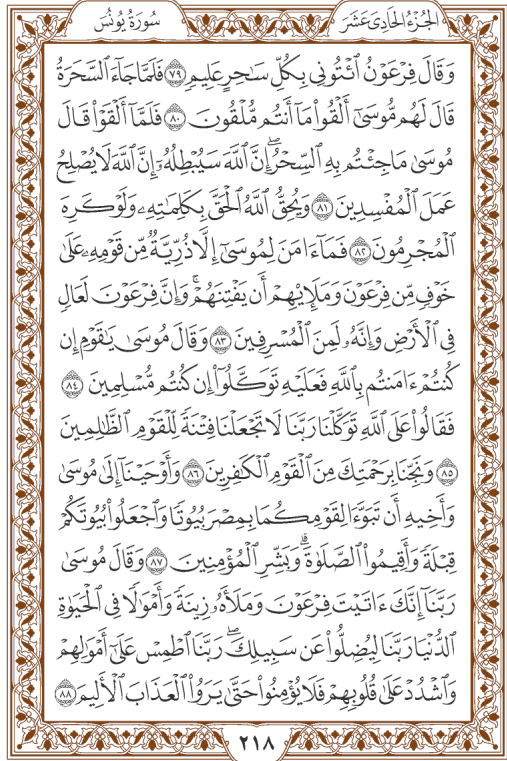 الجُزْءُ الحَادِي عَشَرَ
سُورَةُ يُونُسَ
وَقَالَ فِرْعَوْنُ ٱئْتُونِي بِكُلِّ سَٰحِرٍ عَلِيمٍ ٧٩ فَلَمَّا جَآءَ ٱلسَّحَرَةُ
قَالَ لَهُم مُّوسَىٰٓ أَلْقُوا۟ مَآ أَنتُم مُّلْقُونَ ٨٠ فَلَمَّآ أَلْقَوْا۟ قَالَ
مُوسَىٰ مَا جِئْتُم بِهِ ٱلسِّحْرُ ۖ إِنَّ ٱللَّهَ سَيُبْطِلُهُۥٓ ۖ إِنَّ ٱللَّهَ لَا يُصْلِحُ
عَمَلَ ٱلْمُفْسِدِينَ ٨١ وَيُحِقُّ ٱللَّهُ ٱلْحَقَّ بِكَلِمَٰتِهِۦ وَلَوْ كَرِهَ
ٱلْمُجْرِمُونَ ٨٢ فَمَآ ءَامَنَ لِمُوسَىٰٓ إِلَّا ذُرِّيَّةٌ مِّن قَوْمِهِۦ عَلَىٰ
خَوْفٍ مِّن فِرْعَوْنَ وَمَلَإِي۟هِمْ أَن يَفْتِنَهُمْ ۚ وَإِنَّ فِرْعَوْنَ لَعَالٍ
فِي ٱلْأَرْضِ وَإِنَّهُۥ لَمِنَ ٱلْمُسْرِفِينَ ٨٣ وَقَالَ مُوسَىٰ يَٰقَوْمِ إِن
كُنتُمْ ءَامَنتُم بِٱللَّهِ فَعَلَيْهِ تَوَكَّلُوٓا۟ إِن كُنتُم مُّسْلِمِينَ ٨٤
فَقَالُوا۟ عَلَى ٱللَّهِ تَوَكَّلْنَا رَبَّنَا لَا تَجْعَلْنَا فِتْنَةً لِّلْقَوْمِ ٱلظَّٰلِمِينَ
٨٥ وَنَجِّنَا بِرَحْمَتِكَ مِنَ ٱلْقَوْمِ ٱلْكَٰفِرِينَ ٨٦ وَأَوْحَيْنَآ إِلَىٰ مُوسَىٰ
وَأَخِيهِ أَن تَبَوَّءَا لِقَوْمِكُمَا بِمِصْرَ بُيُوتًا وَٱجْعَلُوا۟ بُيُوتَكُمْ
قِبْلَةً وَأَقِيمُوا۟ ٱلصَّلَوٰةَ ۗ وَبَشِّرِ ٱلْمُؤْمِنِينَ ٨٧ وَقَالَ مُوسَىٰ
رَبَّنَآ إِنَّكَ ءَاتَيْتَ فِرْعَوْنَ وَمَلَأَهُۥ زِينَةً وَأَمْوَٰلًا فِي ٱلْحَيَوٰةِ
ٱلدُّنْيَا رَبَّنَا لِيُضِلُّوا۟ عَن سَبِيلِكَ ۖ رَبَّنَا ٱطْمِسْ عَلَىٰٓ أَمْوَٰلِهِمْ
وَٱشْدُدْ عَلَىٰ قُلُوبِهِمْ فَلَا يُؤْمِنُوا۟ حَتَّىٰ يَرَوُا۟ ٱلْعَذَابَ ٱلْأَلِيمَ ٨٨
٢١٨